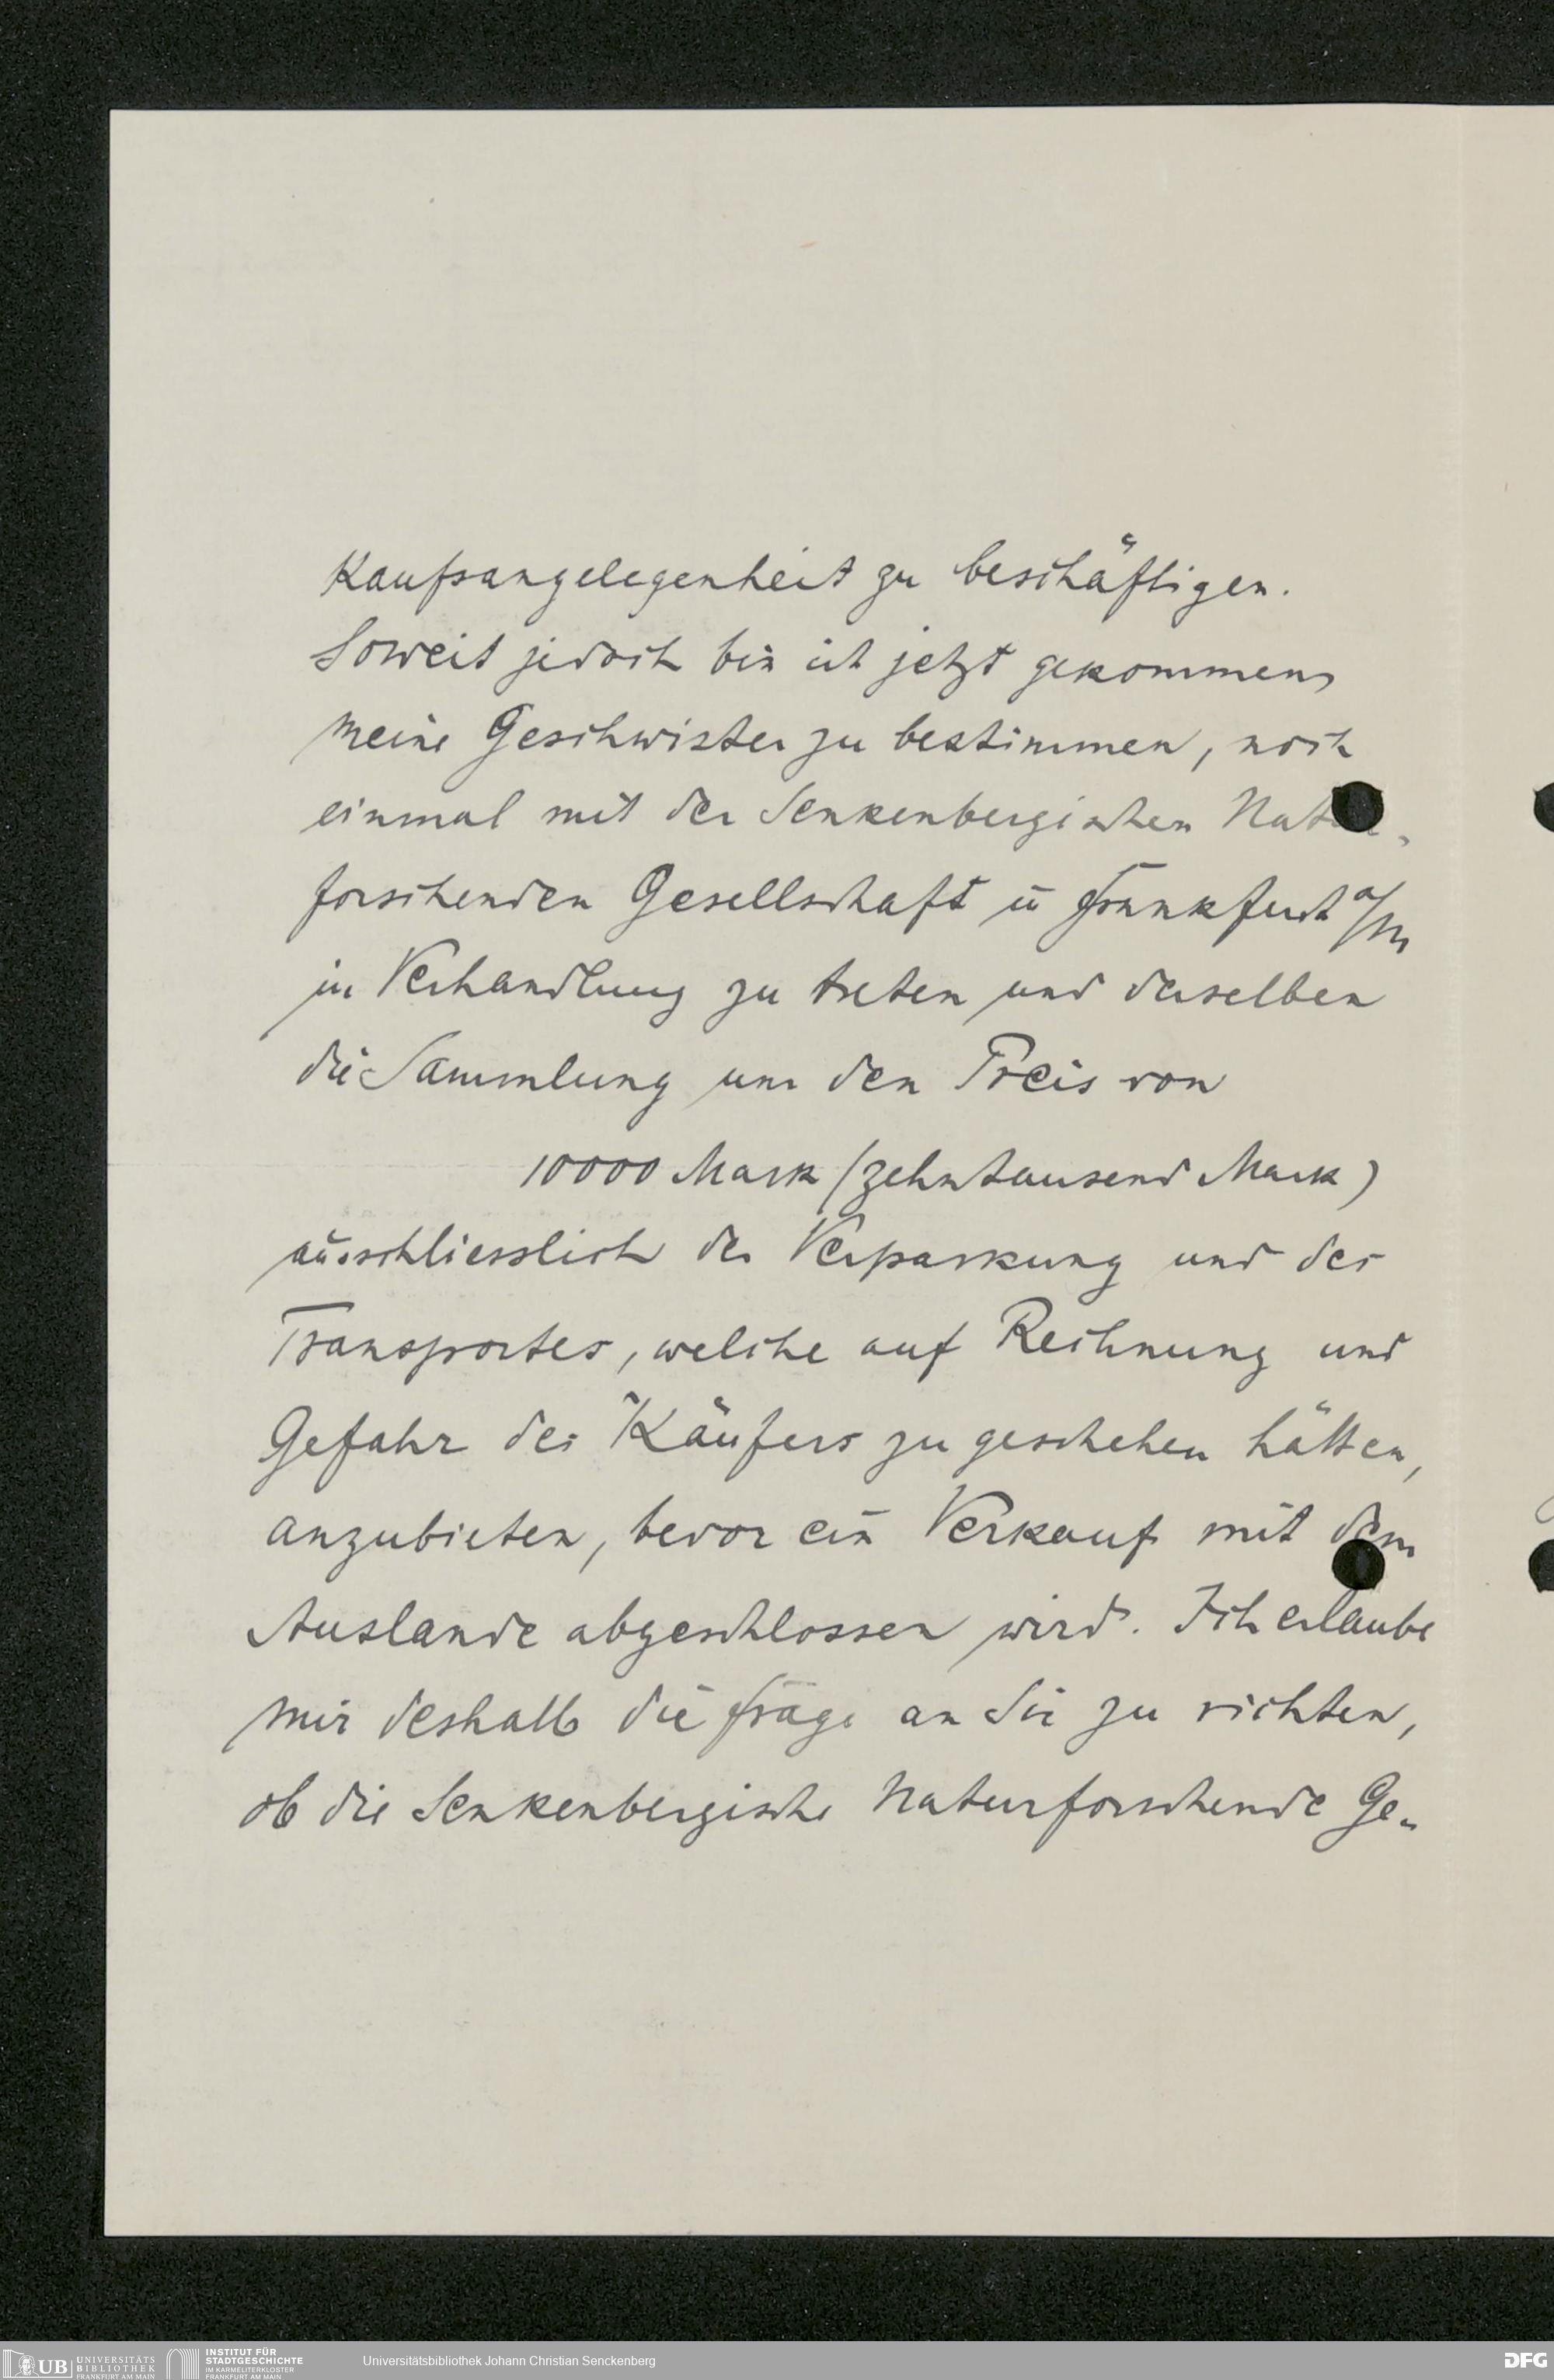 Kaufsangelegenheit zu beschäftigen.
Soweit jedoch bin ich jetzt gekommen,
meine Geschwister zu bestimmen, noch
einmal mit der Senkenbergischen Natur-
forschenden Gesellschaft in Frankfurt a/M
in Verhandlung zu treten und derselben
die Sammlung um den Preis von
10000 Mark (zehntausend Mark)
ausschliesslich der Verpackung und des
Transportes, welche auf Rechnung und
Gefahr des Käufers zu geschehen hätten,
anzubieten, bevor ein Verkauf mit dem
Auslande abgeschlossen wird. Ich erlaube
mir deshalb die Frage an Sie zu richten,
ob die Senkenbergische Naturforschende Ge-
UB UNIVERSITÄTS BIBLIOTHEK FRANKFURT AM MAIN
INSTITUT FÜR STADTGESCHICHTE IM KARMELITERKLOSTER FRANKFURT AM MAIN
Universitätsbibliothek Johann Christian Senckenberg
DFG